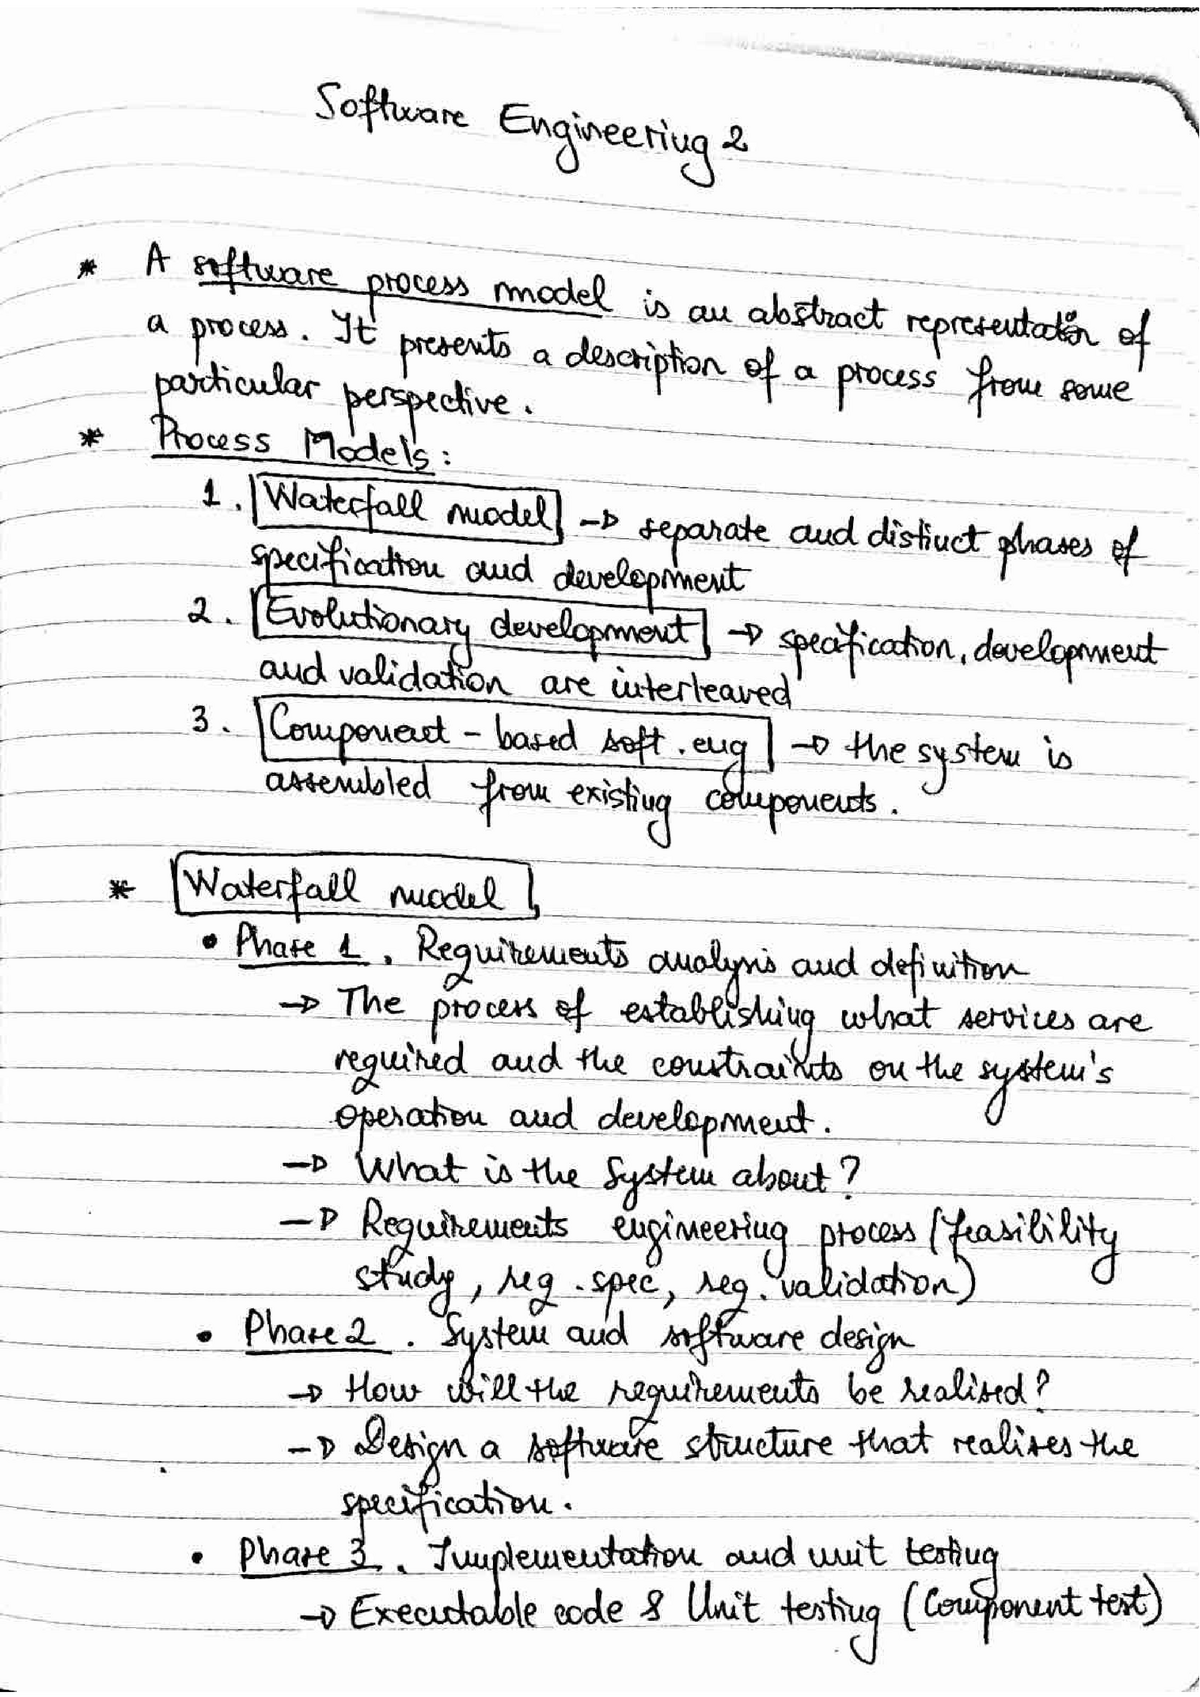 Software Engineering 2
* A software process model is an abstract representation of
a process. It presents a description of a process from some
particular perspective.
* Process Models:
1. Waterfall model → separate and distinct phases of
specification and development
2. Evolutionary development → specification, development
and validation are interleaved
3. Component-based soft.eng → the system is
assembled from existing components.
* Waterfall model
• Phase 1. Requirements analysis and definition
→ The process of establishing what services are
required and the constraints on the system's
operation and development.
→ What is the System about?
→ Requirements engineering process (feasibility
study, req.spec, req.validation)
• Phase 2. System and software design
→ How will the requirements be realised?
→ Design a software structure that realises the
specification.
• Phase 3. Implementation and unit testing
→ Executable code & Unit testing (Component test)